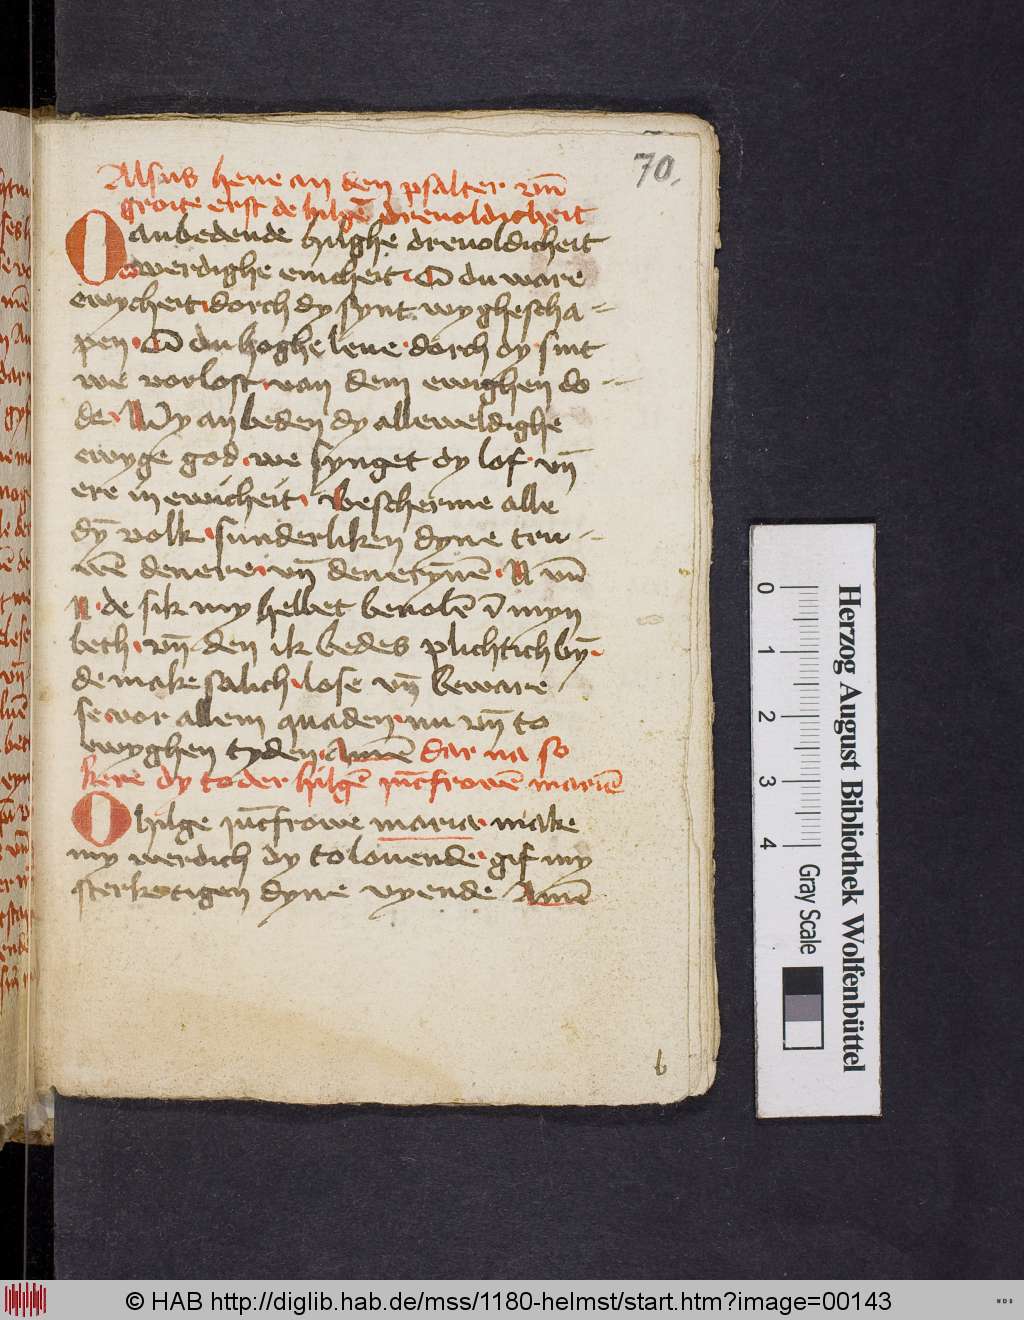 70,
Alsus heue an den psalter vn̄
groite erst de hilgē dreuoldicheit
O anbedende hilghe dreuoldicheit
O werdighe enicheit O du ware
ewycheit dorch dy synt wy ghescha-
pen O du hoghe leue dorch dy sint
we vorlost van dem ewighen do-
de Wy anbeden dy alleweldighe
ewyge god we synget dy lof vn̄
ere in ewicheit bescherme alle
dȳ volk sunderliken dyne tru-
wē denere vn̄ N vn̄
N de sik my hebbet beuolē ī myn
beth vn̄ den ik bedes plichtich bȳ
de make salich lose vn̄ beware
se vor allem quaden nu vn̄ to
ewyghen tyden Amē dar na so
kere dy to der hilgē iūcfrowē mariē
O hilge iūcfrowe maria make
my werdich dy to louende gif my
sterke tigen dyne vyende Amē
b
Herzog August Bibliothek Wolfenbüttel
0 1 2 3 4 Gray Scale
© HAB http://diglib.hab.de/mss/1180-helmst/start.htm?image=00143